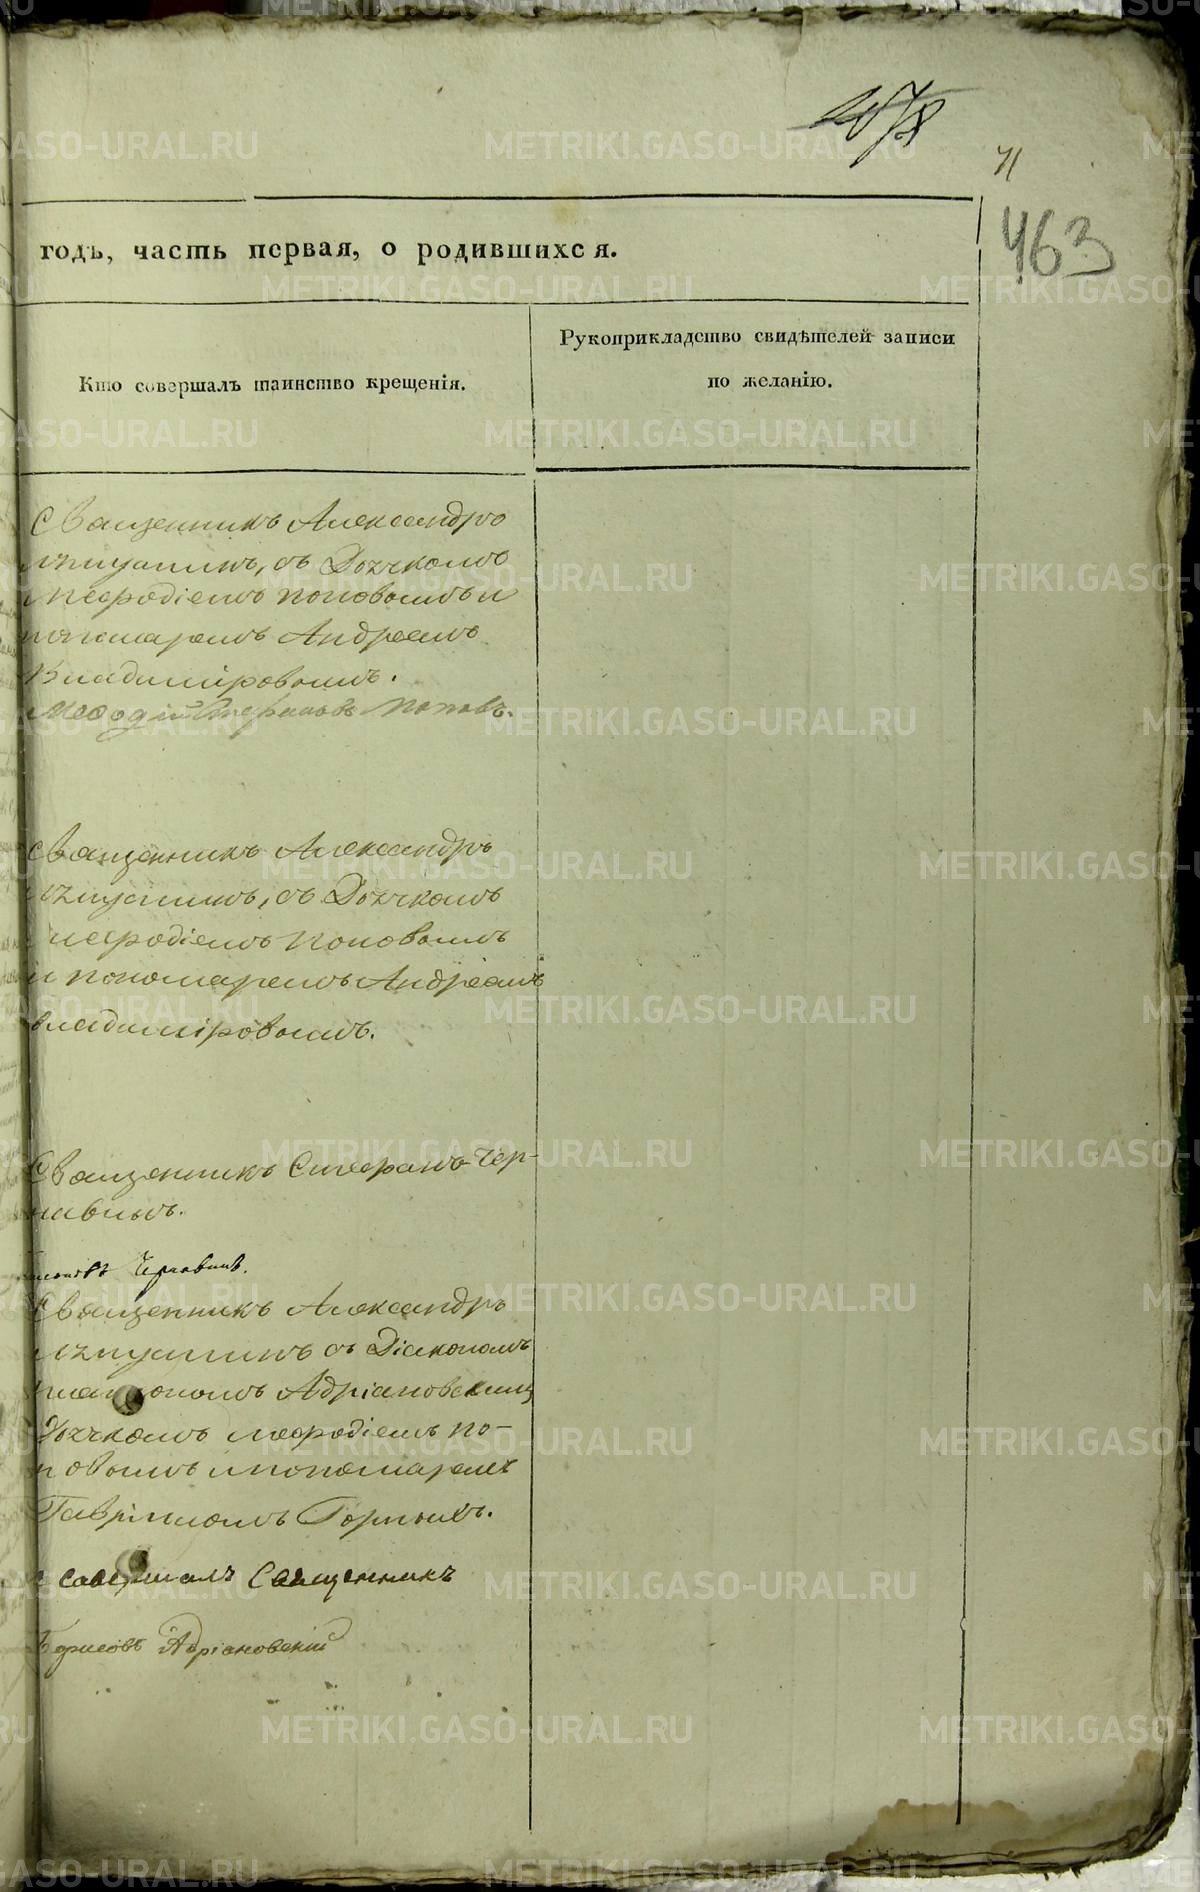 463
годъ, часть первая, о родившихся.
Кто совершалъ таинство крещенія.
Рукоприкладство свидѣтелей записи
по желанію.
Священникъ Александръ
съ Дьячкомъ
Меѳодіемъ Поповымъ и
пономаремъ Андреемъ
Владиміровымъ.
Меѳодій Стефановъ Поповъ.
Священникъ Александръ
съ Дьячкомъ
Меѳодіемъ Поповымъ
и пономаремъ Андреемъ
Владиміровымъ.
Священникъ Стефанъ Чер-
Священникъ Александръ
съ Діакономъ
Адріановскимъ
Дьячкомъ Меѳодіемъ По-
повымъ и пономаремъ
Гавріиломъ Горныхъ.
совершалъ Священникъ
Борисовъ Адріановскій
METRIKI.GASO-URAL.RU